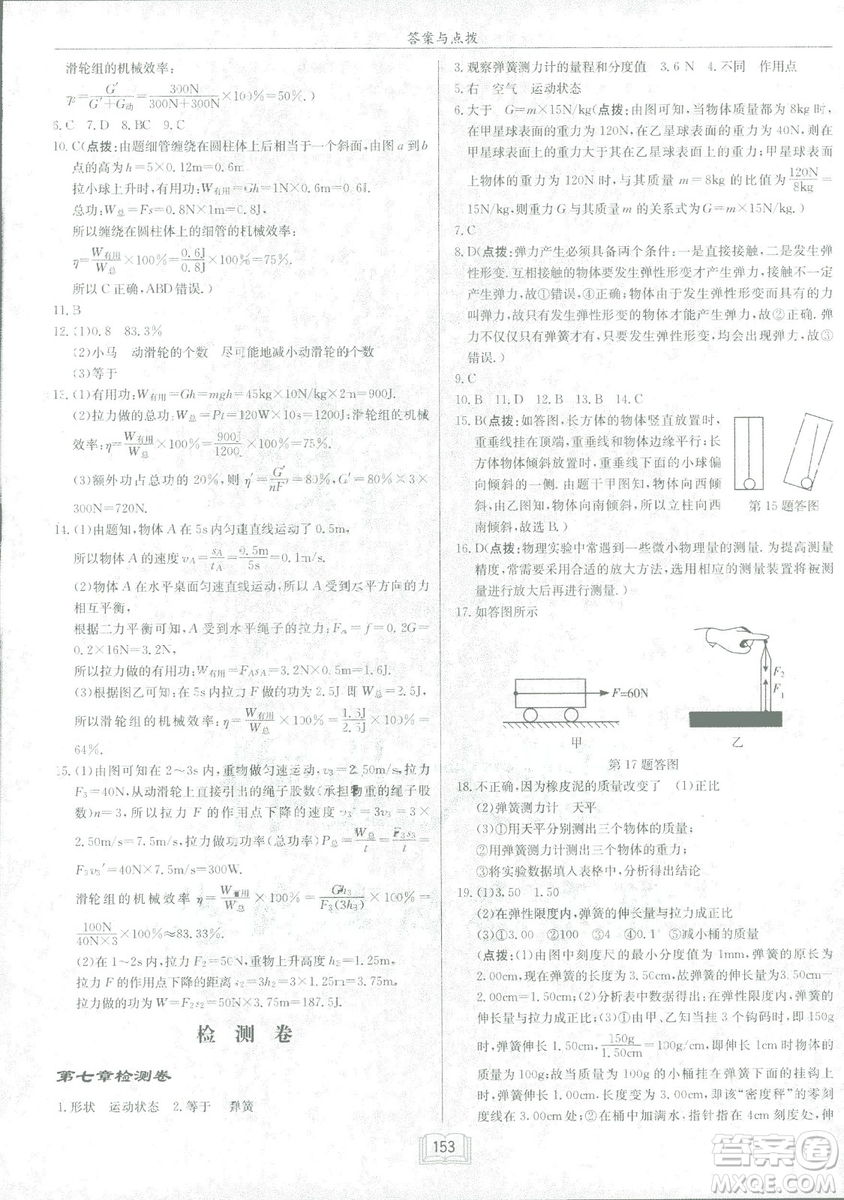 答案与点拨
滑轮组的机械效率:
η₂=G′/(G′+G动)=300N/(300N+300N)×100%=50%.)
6.C 7.D 8.BC 9.C
10.C(点拨:由题细管缠绕在圆柱体上后相当于一个斜面,由图a到b
点的高为h=5×0.12m=0.6m
拉小球上升时,有用功:W有用=Gh=1N×0.6m=0.6J.
总功:W总=Fs=0.8N×1m=0.8J,
所以缠绕在圆柱体上的细管的机械效率:
η=W有用/W总×100%=0.6J/0.8J×100%=75%.
所以C正确,ABD错误.)
11.B
12.(1)0.8 83.3%
(2)小马 动滑轮的个数 尽可能地减小动滑轮的个数
(3)等于
13.(1)有用功:W有用=Gh=mgh=45kg×10N/kg×2m=900J.
(2)拉力做的总功:W总=Pt=120W×10s=1200J;滑轮组的机械
效率:η=W有用/W总×100%=900J/1200J×100%=75%.
(3)额外功占总功的20%,η′=G′/nF×100%,G′=80%×3×
300N=720N.
14.(1)由题知,物体A在5s内匀速直线运动了0.5m,
所以物体A的速度vA=sA/tA=0.5m/5s=0.1m/s.
(2)物体A在水平桌面匀速直线运动,所以A受到水平方向的力
相互平衡,
根据二力平衡可知,A受到水平绳子的拉力:FA=f=0.2G=
0.2×16N=3.2N,
所以拉力做的有用功:W有用=FAsA=3.2N×0.5m=1.6J.
(3)根据图乙可知:在5s内拉力F做的功为2.5J即W总=2.5J,
所以滑轮组的机械效率:η=W有用/W总×100%=1.6J/2.5J×100%=
64%.
15.(1)由图可知在2~3s内,重物做匀速运动,v₃=2.50m/s,拉力
F₃=40N,因为从动滑轮上直接引出的绳子股数(承担物重的绳子股
数)n=3,所以拉力F的作用点下降的速度v₃′=3v₃=3×
2.50m/s=7.5m/s,拉力做功功率(总功率)P总=W总/t=F₃s₃/t
=F₃v₃′=40N×7.5m/s=300W.
滑轮组的机械效率η=W有用/W总×100%=Gh₃/F₃(3h₃)×100%=
100N/(40N×3)×100%≈83.33%.
(2)在1~2s内,拉力F₂=50N,重物上升高度h₂=1.25m
拉力F的作用点下降的距离s₂=3h₂=3×1.25m=3.75m,
拉力做功:W₂=F₂s₂=50N×3.75m=187.5J.
检测卷
第七章检测卷
1.形状 运动状态 2.等于 弹簧
3.观察弹簧测力计的量程和分度值 3.6N 4.不同 作用点
5.右 空气 运动状态
6.大于 G=m×15N/kg(点拨:由图可知,当物体质量都为8kg时,
在甲星球表面的重力为120N,在乙星球表面的重力为40N,所以
在甲星球上的重力大于其在乙星球上的重力;甲星球表面
上物体的重力为120N,质量m=8kg的比值为120N/8kg=
15N/kg,所以重力G与其质量m的关系式为G=m×15N/kg.)
7.C
8.D(点拨:弹力产生必须具备两个条件:一是直接接触,二是发生弹
性形变.互相接触的物体要发生弹性形变才产生弹力,接触不一定
产生弹力,故①错误;物体由于发生弹性形变而产生的力
叫弹力,故发生弹性形变的物体才能产生弹力,故②正确;弹
力不仅仅只有弹簧才有,只要发生弹性形变,均有弹力,故③
错误.)
9.C
10.B 11.D 12.B 13.B 14.C
15.B(点拨:如答图,长方体的物体竖直放置时,
重垂线挂在顶端,重垂线和物体边缘平行;
长方体物体倾斜放置时,重垂线下面的小球偏
向倾斜的一侧.由题干于甲图知,物体向西
倾斜,由乙图知,物体向南倾斜,所以立柱向西
南倾斜,故选B.)
第15题答图
16.D(点拨:物理实验中常遇到一些微小物理量的测量.为提高测量
精度,常需采用合适的放大方法,选用相应的测量装置将被测
量进行放大后再进行测量.)
17.如答图所示
F=60N
F₂
F₁
甲 乙
第17题答图
18.不正确,因为橡皮泥的质量改变了 (1)正比
(2)弹簧测力计 天平
(3)①用天平分别测出三个物体的质量;
②用弹簧测力计测出三个物体的重力;
③将实验数据填入表格中,分析得出结论
19.(1)3.50 1.50
(2)在弹性限度内,弹簧的伸长量与拉力成正比
(3)①0.00 ②100 ③4 ④减小桶的质量
(点拨:(1)由图中刻度尺的最小分度值为1mm,弹簧的原长为
2.00cm,现在弹簧的长度为3.50cm,故弹簧的伸长量为1.50cm.
(2)分析实验中的数据得出:在弹性限度内,弹簧的
伸长量与拉力成正比.(3)①由甲、乙知当挂3个钩码时,即150g
时,弹簧伸长1.50cm,即150g/1.50cm=100g/cm,故每伸长1cm所挂物体的
质量为100g;所以当质量不计的小桶挂在弹簧下面的挂钩上
时,弹簧伸长量是0,故指针指示的位置即是该“密度秤”的零刻
度线在2.00cm处;②在桶中加满水,指针指在4cm刻度处,伸
153
答案圈
MXQE.COM